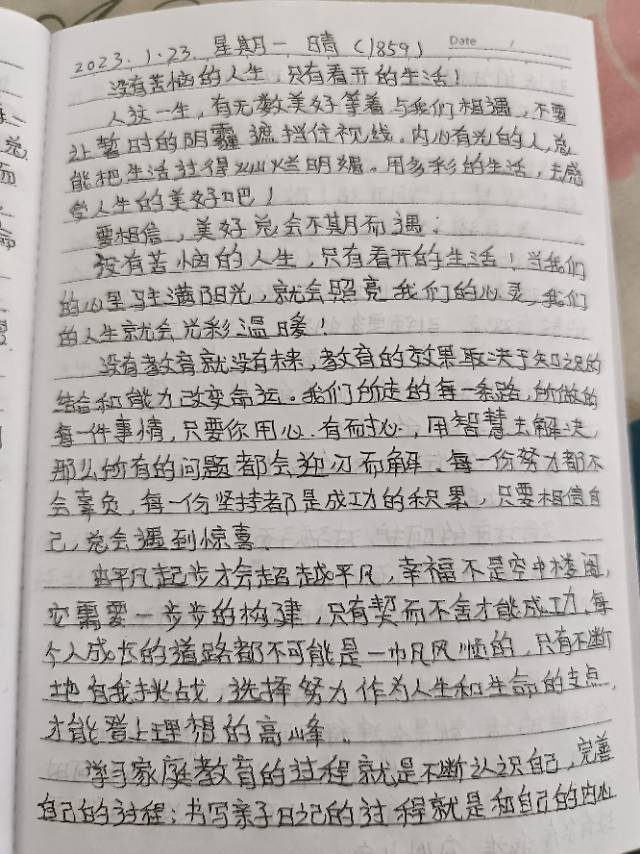 2023.1.23. 星期一 晴（1859） Date
没有苦恼的人生，只有看开的生活！
人这一生，有无数美好等着与我们相遇，不要
让暂时的阴霾遮挡住视线。内心有光的人，总
能把生活过得灿烂明媚。用多彩的生活，去感
受人生的美好吧！
要相信，美好总会不期而遇：
没有苦恼的人生，只有看开的生活！当我们
的心里驻满阳光，就会照亮我们的心灵，我们
的人生就会光彩温暖！
没有教育就没有未来，教育的效果取决于知识的
结合和能力改变命运。我们所走的每一条路，所做的
每一件事情，只要你用心，有耐心，用智慧去解决，
那么所有的问题都会迎刃而解。每一份努力都不
会辜负，每一份坚持都是成功的积累，只要相信自
己，总会遇到惊喜。
平凡起步才会超越平凡，幸福不是空中楼阁，
它需要一步步的构建，只有契而不舍才能成功，每
个人成长的道路都不可能是一帆风顺的，只有不断
地自我挑战，选择努力作为人生和生命的支点，
才能登上理想的高峰。
学习家庭教育的过程就是不断认识自己，完善
自己的过程；书写亲子日记的过程就是和自己的内心